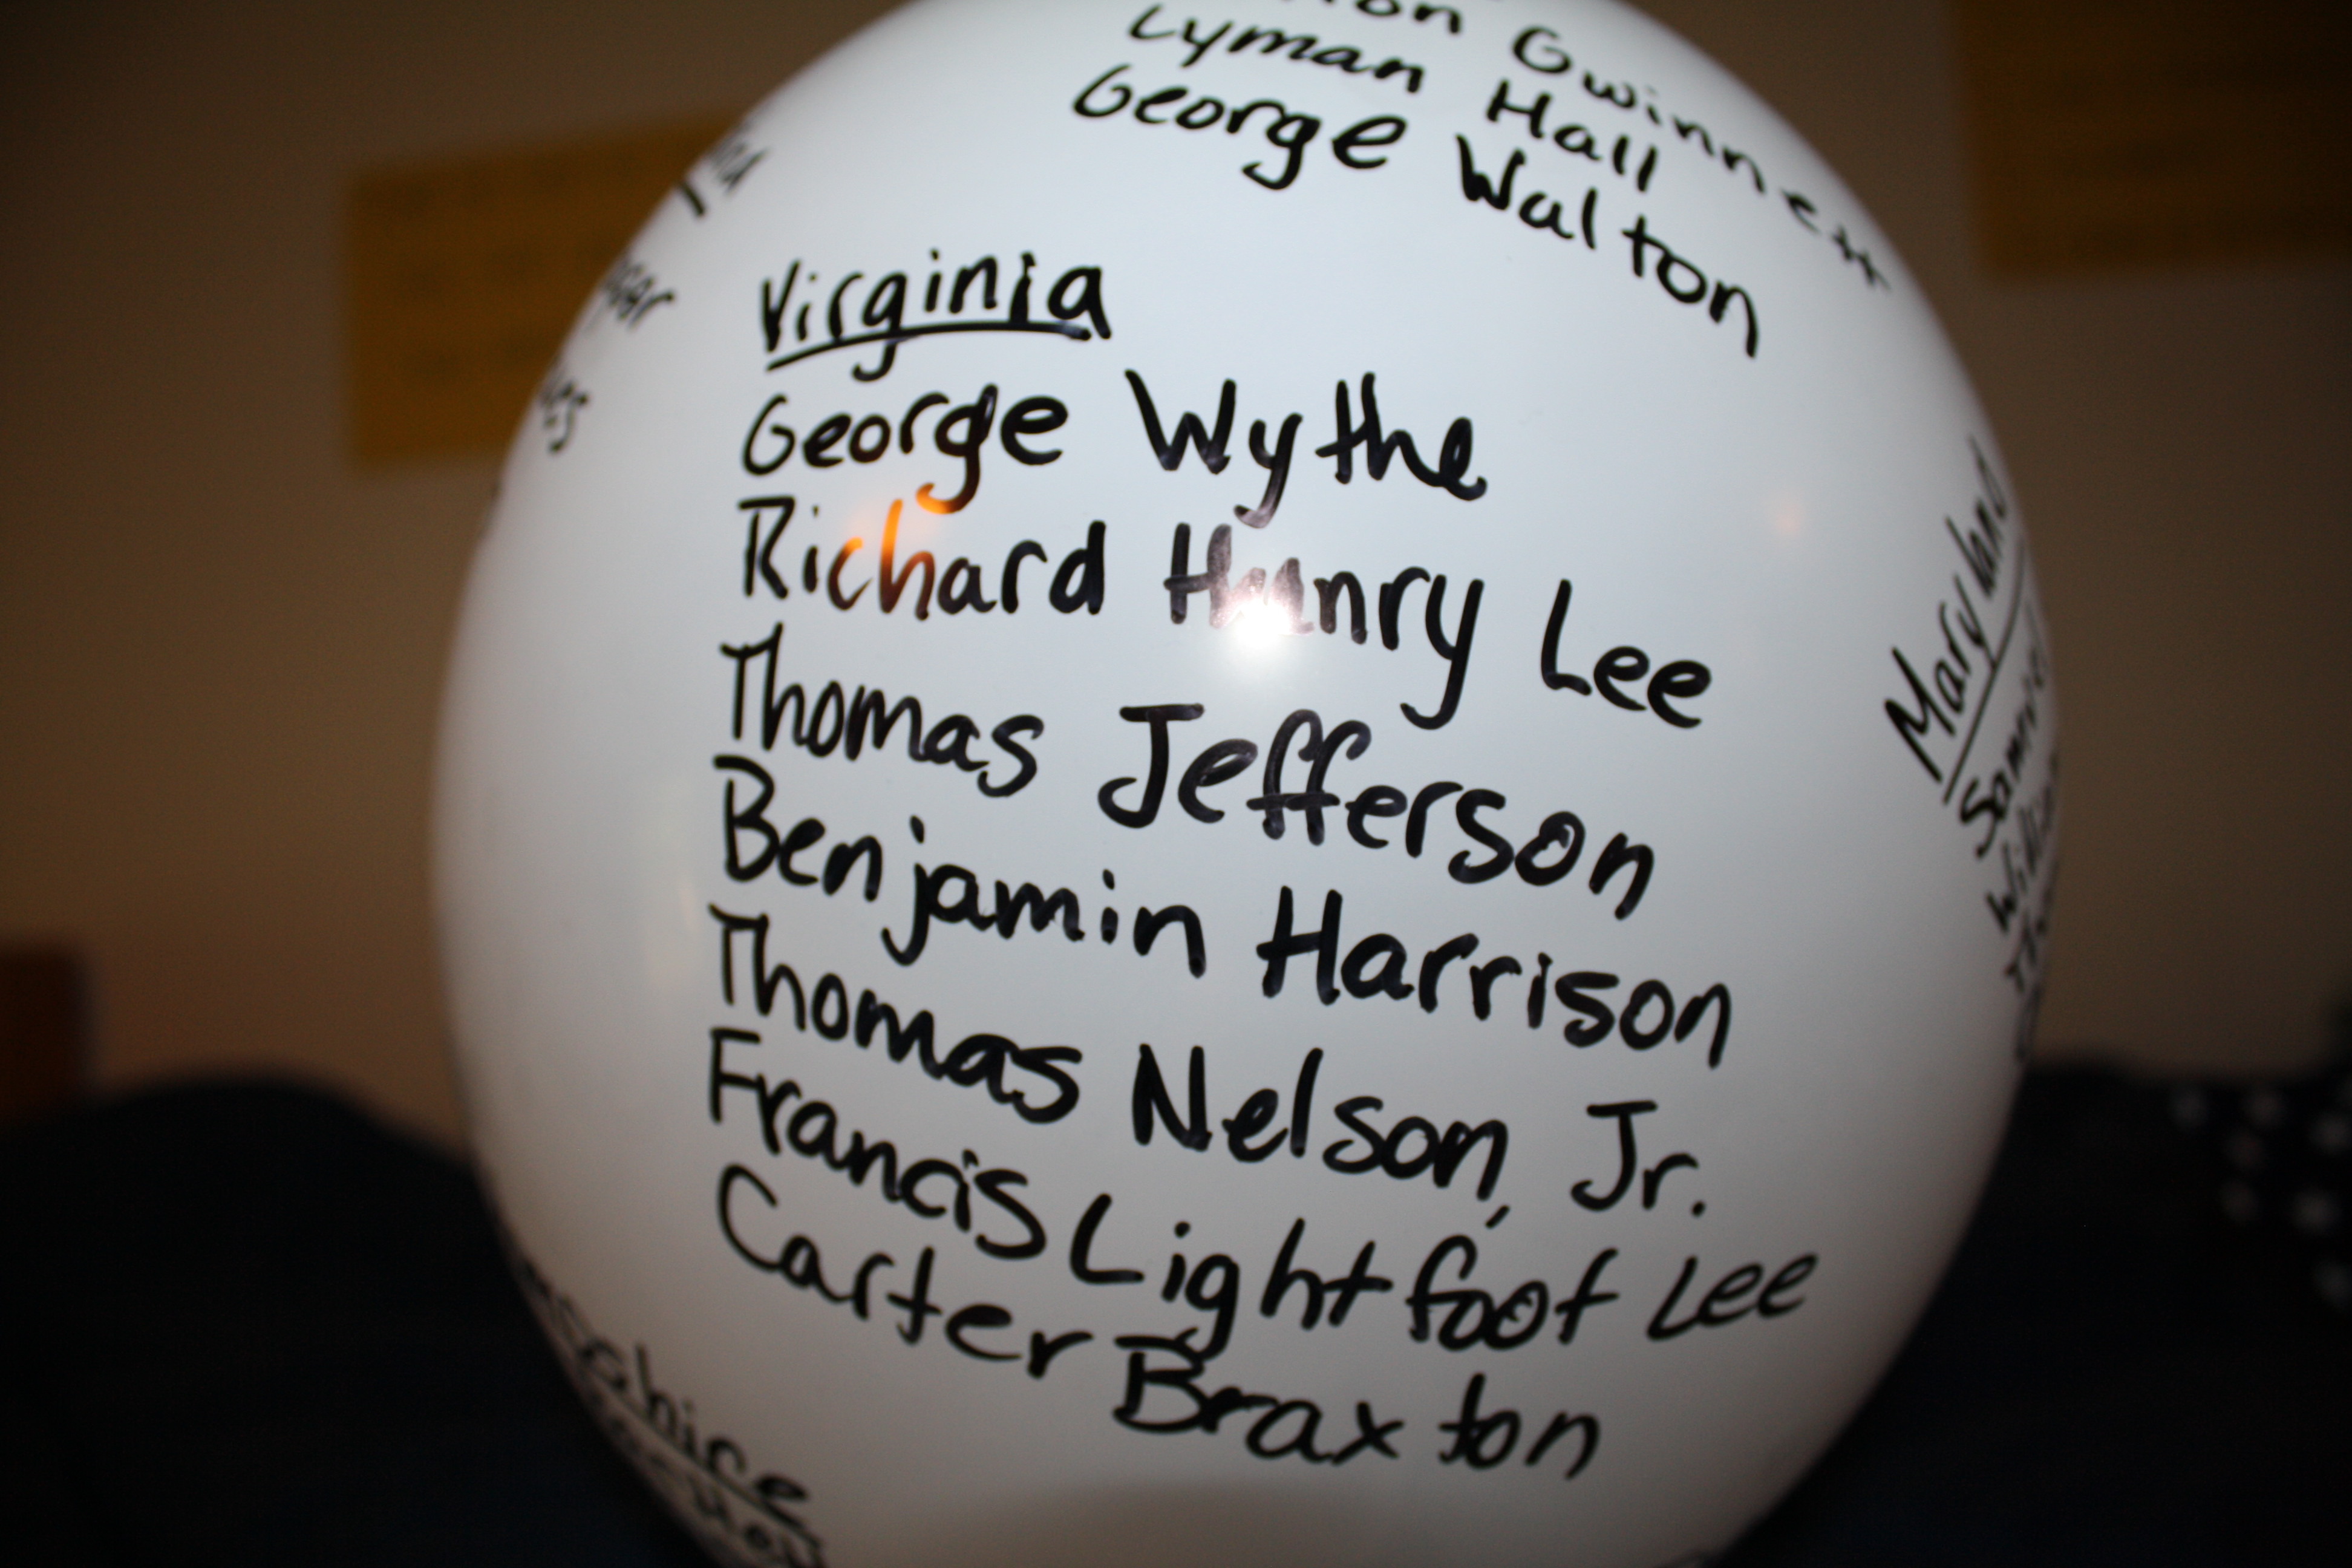 Gwinnett
Lyman Hall
George Walton
Virginia
George Wythe
Richard Henry Lee
Thomas Jefferson
Benjamin Harrison
Thomas Nelson, Jr.
Francis Lightfoot Lee
Carter Braxton
Maryland
Samuel